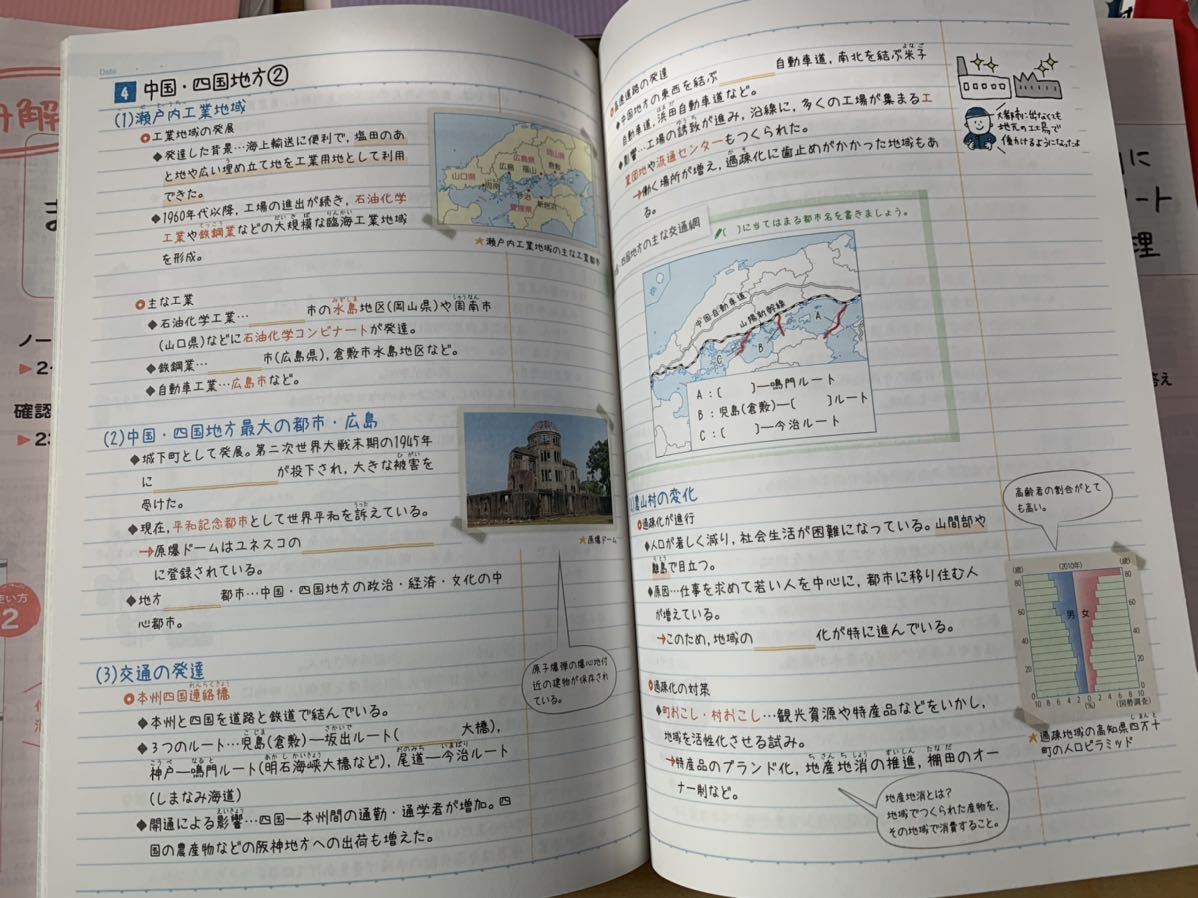 Date
4 中国・四国地方②
(1)瀬戸内工業地域
工業地域の発展
◆発達した背景…海上輸送に便利で,塩田のあ
と地や広い埋め立て地を工業用地として利用
できた。
◆1960年代以降,工場の進出が続き,石油化学
工業や鉄鋼業などの大規模な臨海工業地域
を形成。
山口県
広島県
岡山県
愛媛県
広島
福山
倉敷
周南
今治
新居浜
★瀬戸内工業地域の主な工業都市
主な工業
◆石油化学工業…市の水島地区(岡山県)や周南市
(山口県)などに石油化学コンビナートが発達。
◆鉄鋼業…市(広島県),倉敷市水島地区など。
◆自動車工業…広島市など。
(2)中国・四国地方最大の都市・広島
◆城下町として発展。第二次世界大戦末期の1945年
に が投下され,大きな被害を
受けた。
◆現在,平和記念都市として世界平和を訴えている。
→原爆ドームはユネスコの
に登録されている。
◆地方 都市…中国・四国地方の政治・経済・文化の中
心都市。
★原爆ドーム
原子爆弾の爆心地付
近の建物が保存され
ている。
(3)交通の発達
本州四国連絡橋
◆本州と四国を道路と鉄道で結んでいる。
◆3つのルート…児島(倉敷)―坂出ルート( 大橋),
神戸―鳴門ルート(明石海峡大橋など),尾道―今治ルート
(しまなみ海道)
◆開通による影響…四国―本州間の通勤・通学者が増加。四
国の農産物などの阪神地方への出荷も増えた。
高速道路の発達
◆中国地方の東西を結ぶ 自動車道,南北を結ぶ米子
自動車道,浜田自動車道など。
◆影響…工場の誘致が進み,沿線に,多くの工場が集まる工
業団地や流通センターもつくられた。
→働く場所が増え,過疎化に歯止めがかかった地域もあ
る。
大都市に出なくても
地元の工場で
働けるようになったよ
四国地方の主な交通網
( )に当てはまる都市名を書きましょう。
中国自動車道
山陽新幹線
A
B
C
A:( )―鳴門ルート
B:児島(倉敷)―( )ルート
C:( )―今治ルート
農山村の変化
過疎化が進行
◆人口が著しく減り,社会生活が困難になっている。山間部や
離島で目立つ。
◆原因…仕事を求めて若い人を中心に,都市に移り住む人
が増えている。
→このため,地域の 化が特に進んでいる。
高齢者の割合がとて
も高い。
(歳) (2010年) (歳)
80 80
60 60
男 女
40 40
20 20
0 0
10 8 6 4 2 0 2 4 6 8 10
(%) (国勢調査)
★過疎地域の高知県四万十
町の人口ピラミッド
過疎化の対策
◆町おこし・村おこし…観光資源や特産品などをいかし,
地域を活性化させる試み。
→特産品のブランド化,地産地消の推進,棚田のオー
ナー制など。
地産地消とは?
地域でつくられた産物を,
その地域で消費すること。
解
ノー
確認
使い方
2
に
ート
理
答え